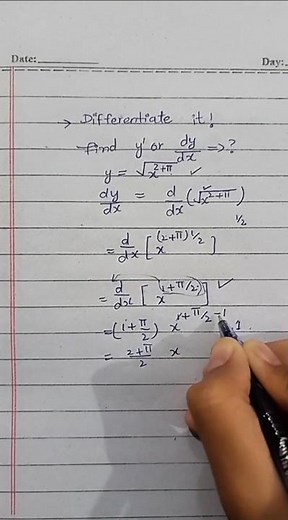 Date: Day:
→ Differentiate it!
Find y' or dy/dx =>?
y = √x^(2+π) ✓
dy/dx = d/dx (√x^(2+π))^1/2
= d/dx [x^(2+π)1/2]
= d/dx [x^(1+π/2)] ✓
= (1+π/2) x^(1+π/2-1) . 1
= 2+π/2 x